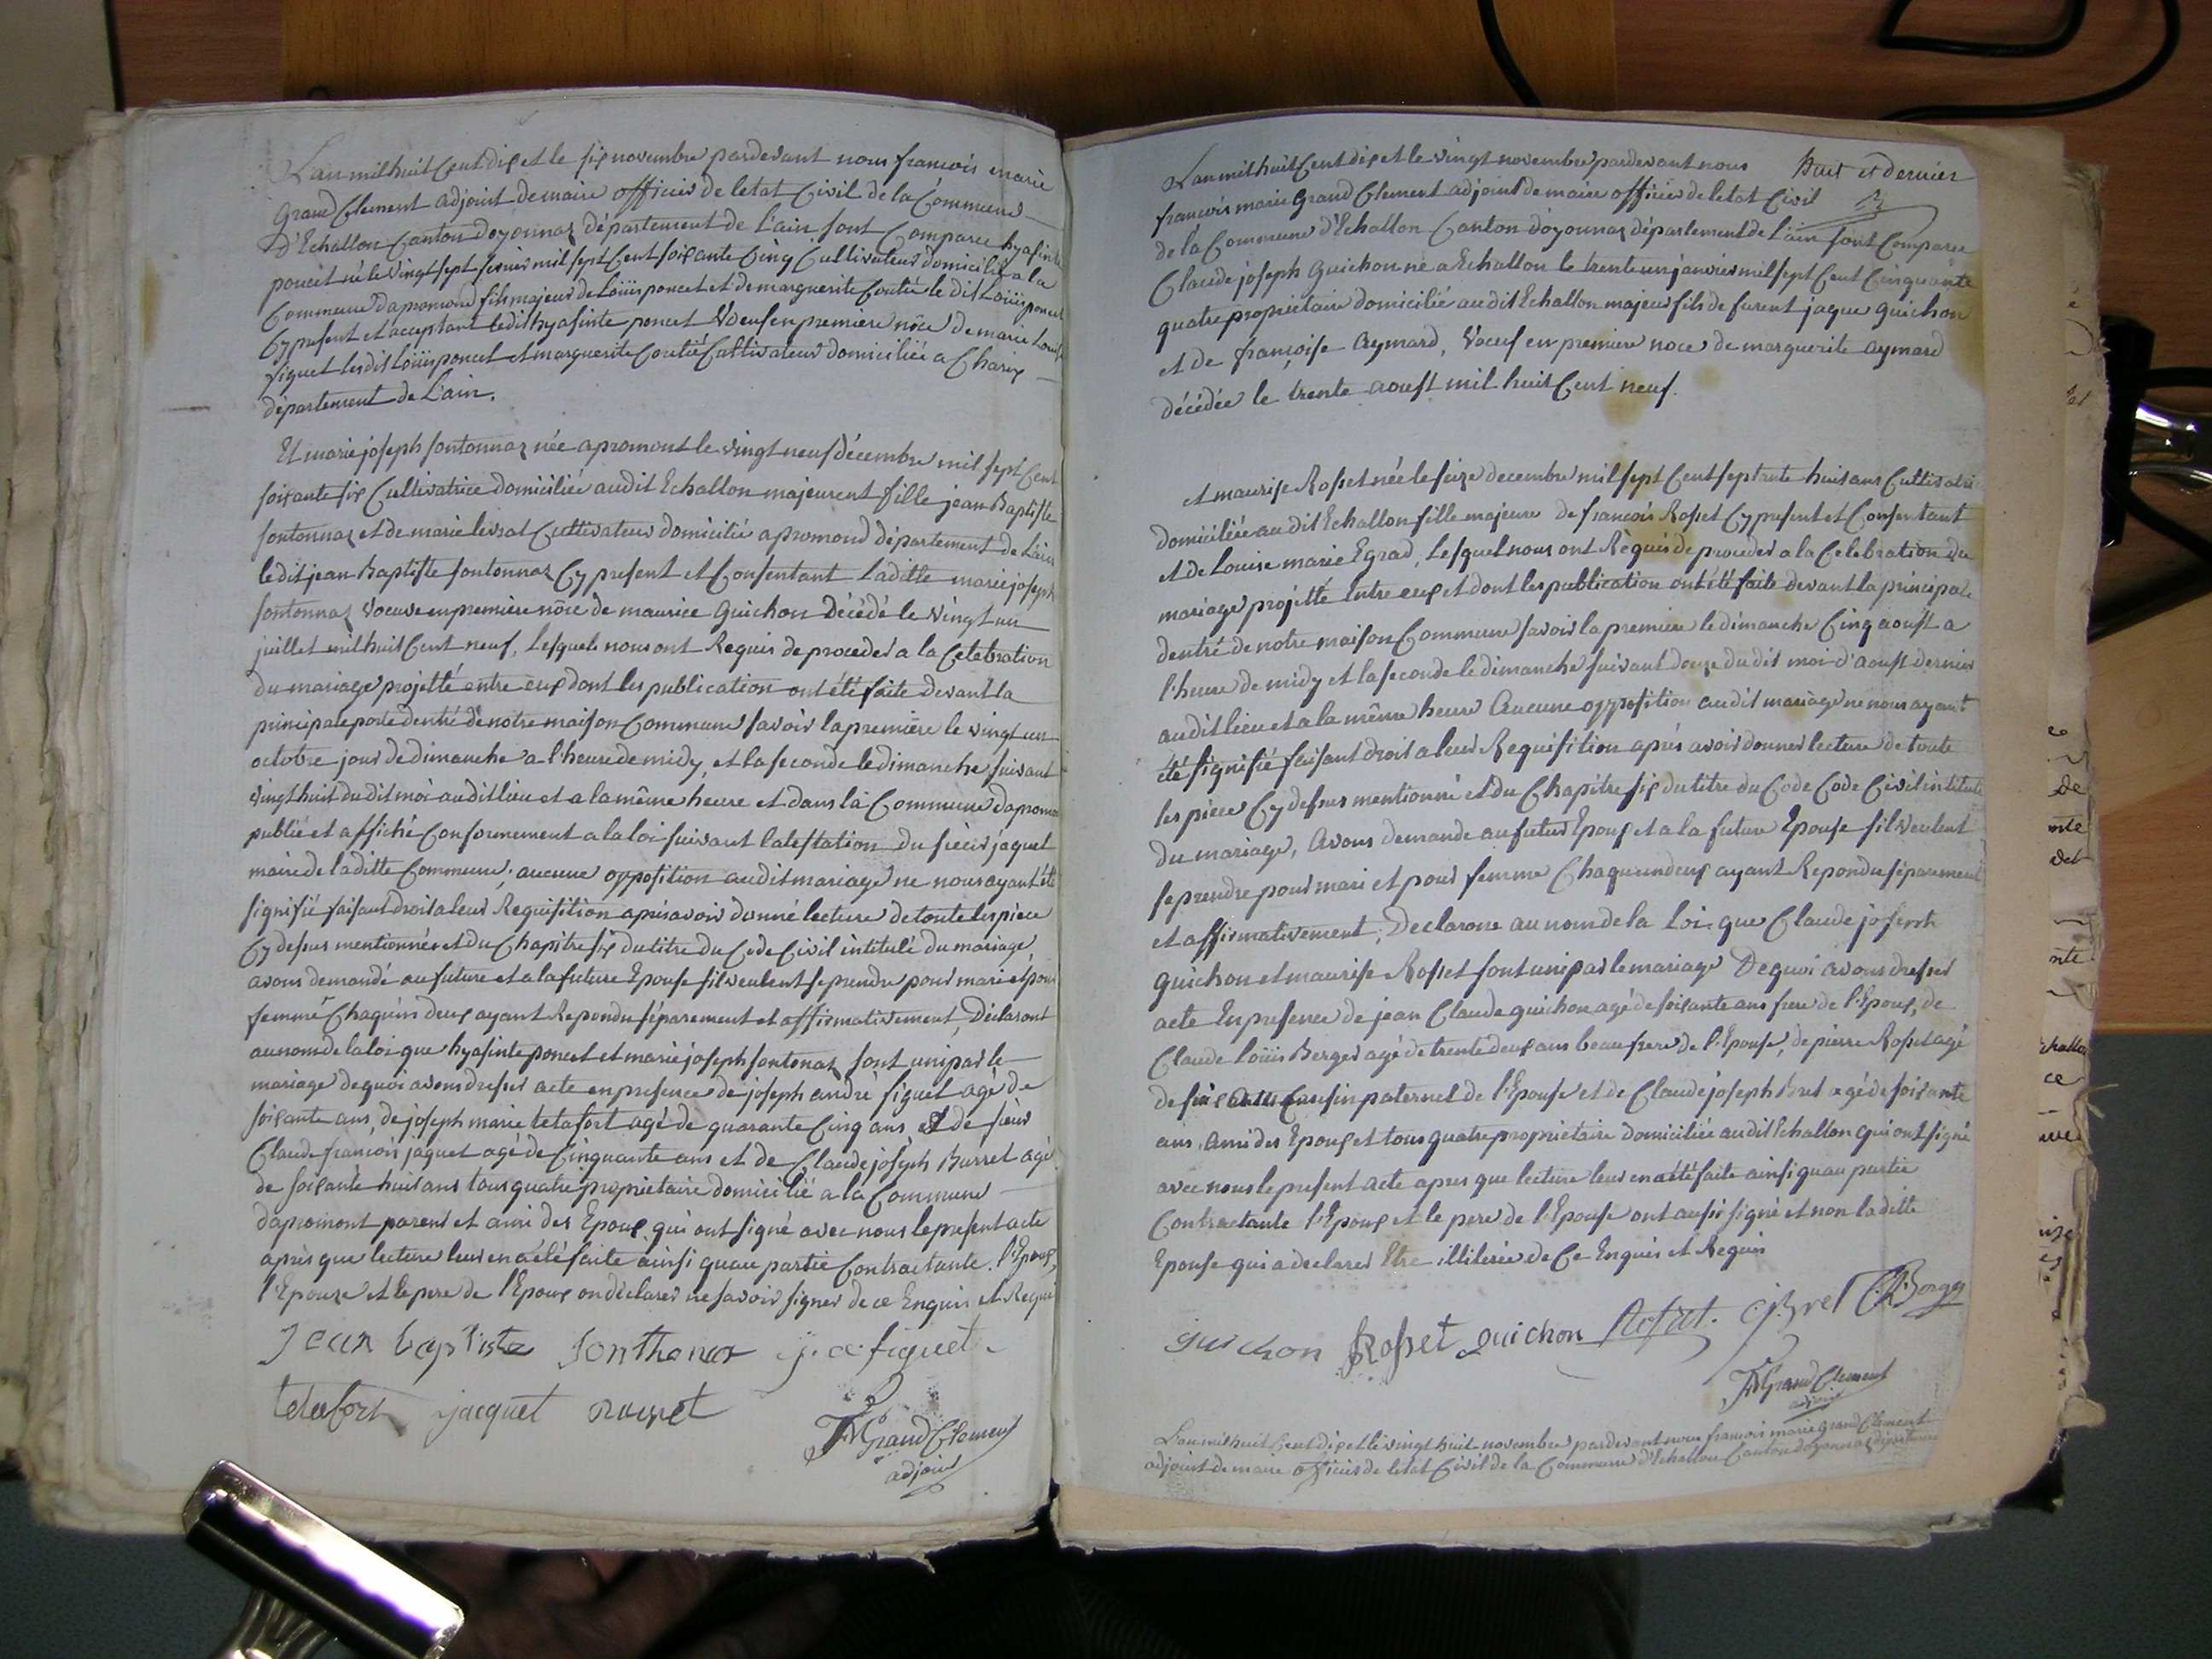 L'an mil huit Cent dix et le six novembre pardevant nous francois marie
Grand Clement adjoint demaire officier de letat Civil de la Commune
d'Echallon Canton doyonnaz département de L'ain sont Comparu hyasinte
poncet né le vingt sept mil sept Cent soixante Cinq Cultivateur domicilié a la
Commune dapromond fils majeur de Loüis poncet et de marguerite Coutié le dit Loüis poncet
Cy present et acceptant ledit hyasinte poncet Voeuf en premiere nôce de marie Louise
figuet lesdit Loüis poncet et marguerite Coutié Cultivateur domiciliée a Charix
département de L'ain.
Et marie joseph sontonnaz née apromont le vingt neuf décembre mil sept Cent
soixante six Cultivatrice domiciliée audit Echallon majeurent fille jean Baptiste
sontonnaz et de marie levrat Cultivateur domicilié apromond département de L'ain
ledit jean Baptiste sontonnaz Cy present et Consentant Laditte marie joseph
sontonnaz Voeuve en premiere nôce de maurice Guichon Décédé le vingt un
juillet mil huit Cent neuf, Lesquels nous ont Requis de proceder a la Celebration
du mariage projetté entre eux dont les publication ont été faite devant la
principale porte dentré de notre maison Commune savoir la premiere le vingt un
octobre jour de dimanche a l'heure de midy, et la seconde le dimanche suivant
vingt huit du dit moi au dit lieu et a la même heure et dans la Commune dapromon
publié et affiché Conformement a la loi suivant latestation du sieur jaquet
maire de laditte Commune; aucune opposition audit mariage ne nous ayant été
signifié faisant droit a leur Requisition après avoir donné lecture de toute les piece
Cy dessus mentionnée et du Chapitre six du titre du Code Civil intitulé du mariage
avons demandé au future et a la future Epouse sil veulent se prendre pour mari et pour
femme Chaquun deux ayant Repondu séparement et affirmativement, Déclaront
au nom de la loi que hyasinte poncet et marie joseph sontonaz sont uni par le
mariage dequoi avons dresser acte en presence de joseph andré figuet agé de
soixante ans, de joseph marie tetafort agé de quarante Cinq ans et de sieur
Claude francois jaquet agé de Cinquante ans et de Claude joseph Burret agé
de soixante huit ans tous quatre proprietaire domicilié a la Commune
dapromont parent et ami des Epoux qui ont signé avec nous le present acte
après que lecture leur en a été faite ainsi quau partie Contractante. l'Epoux,
l'Epouze et le pere de l'Epoux on déclarer ne savoir signer de ce Enquis et Requi
Jean baptiste Sonthonax j. a. figuet
tetafort jacquet
FM Grand Clement
adjoint
L'an mil huit Cent dix et le vingt novembre pardevant nous
huit et dernier
francois marie Grand Clement adjoint de maire officier de letat Civil
de la Commune d'Echallon Canton doyonnaz département de L'ain sont Comparu
Claude joseph Guichon né a Echallon le trente un janvier mil sept Cent Cinquante
quatre proprietaire domicilié au dit Echallon majeur fils de furent jaque guichon
et de françoise Aymard, Voeuf en premiere noce de marguerite aymard
décédée le trente aoust mil huit Cent neuf.
et maurise Rosset née le seize decembre mil sept Cent septante huit ans Cultivatrice
domiciliée au dit Echallon fille majeure de francois Rosset Cy present et Consentant
et de Louise marie Egrad, Lesquel nous ont Réquis de proceder a la Celebration du
mariage projetté Entre eux et dont les publication ont été faite devant la principale
dentré de notre maison Commune savoir la premiere le dimanche Cinq aoust a
l'heure de midy et la seconde le dimanche suivant douze du dit moi d'aoust dernier
au dit lieu et a la même heure Aucune opposition au dit mariage ne nous ayant
été signifié faisant droit a leur Requisition après avoir donner lecture de toute
les piece Cy dessus mentionné et du Chapitre six du titre du Code Code Civil intitulé
du mariage, Avons demande au futur Epoux et a la future Epouse sil veulent
se prendre pour mari et pour femme Chaquun deux ayant Repondu séparement
et affirmativement, Declarons au nom de la Loi que Claude joseph
guichon et maurise Rosset sont uni par le mariage De quoi avons dresser
acte En presence de jean Claude guichon agé de soixante ans frere de l'Epoux, de
Claude Loüis Berger agé de trente deux ans beau frere de l'Epouse, de pierre Rosset agé
de Cousin paternel de l'Epouse et de Claude joseph Bret agé de soixante
ans ami des Epoux et tous quatre proprietaire domicilié au dit Echallon qui ont signé
avec nous le present acte apres que lecture leur en a été faite ainsi quau partie
Contractante l'Epoux et le pere de l'Epouse ont aussi signé et non laditte
Epouse qui a declarer Etre illiterée de Ce Enquis et Requis
guichon Rosset guichon Rosset. cj Bret CL Berger
FM Grand Clement
adjoint
L'an mil huit Cent dix et le vingt huit novembre pardevant nous francois marie Grand Clement
adjoint de maire officier de letat Civil de la Commune d'Echallon Canton doyonnaz département